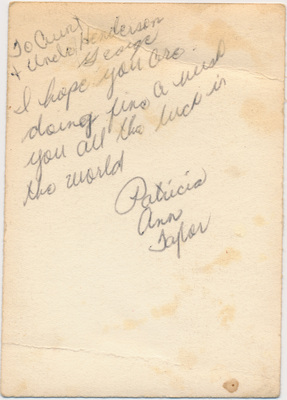 To Aunt
& Uncle Henderson
George
I hope you are
doing fine & wish
you all the luck in
the world
Patricia
Ann
Taylor